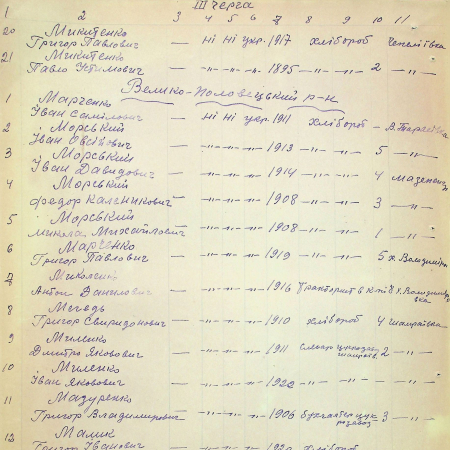 III черга
1 2 3 4 5 6 7 8 9 10 11
20 Микитенко
Григор Павлович — ні ні укр. 1917 хлібороб
21 Микитенко
Павло Устимович — -"- -"- -"- 1895 -"- -"- 2 -"-
Велико-Половецький р-н
1 Марченко
Іван Самілович — ні ні укр. 1911 хлібороб -
2 Морський
Іван Овсійович — -"- -"- -"- 1913 -"- 5 -"-
3 Морський
Іван Давидович — -"- -"- -"- 1914 -"- 4
4 Морський
Федор Каленикович — -"- -"- -"- 1908 -"- 3 -"-
5 Морський
Микола Михайлович — -"- -"- -"- 1908 -"- 1 -"-
6 Марченко
Григор Павлович — -"- -"- -"- 1919 -"- 5 х. Володимирі
7 Миколенко
Антон Данилович — -"- -"- -"- 1916 Тракторист в к 4 х. Володимирівка
8 Мегедь
Григор Свиридонович — -"- -"- -"- 1910 хлібороб 4 шамраївка
9 Миленко
Дмитро Якович — -"- -"- -"- 1911 2 -"-
10 Миленко
Іван Якович — -"- -"- -"- 1920 -"- -"- -"-
11 Мазуренко
Григор Владимирович — -"- -"- -"- 1906 бухгалтер цук 3 -"-
12 Малик
Григор Іванович